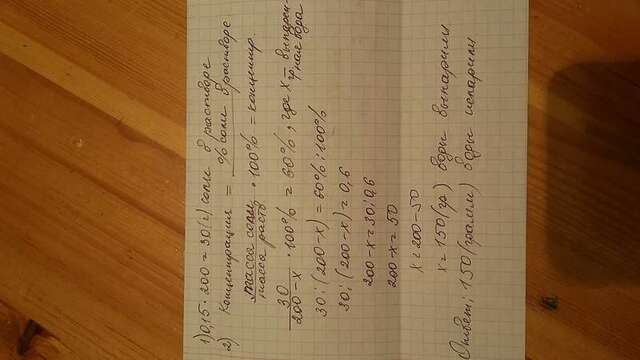 1) 0,15 · 200 = 30 (г) соли в растворе
2) Концентрация = % соли в растворе
масса соли / масса раств · 100% = концентр.
30 / 200 - x · 100% = 60%, где x - выпаренная вода
30 : (200 - x) = 60% : 100%
30 : (200 - x) = 0,6
200 - x = 30 : 0,6
200 - x = 50
x = 200 - 50
x = 150 (гр) воды выпарили
Ответ: 150 (грамм) воды испарили